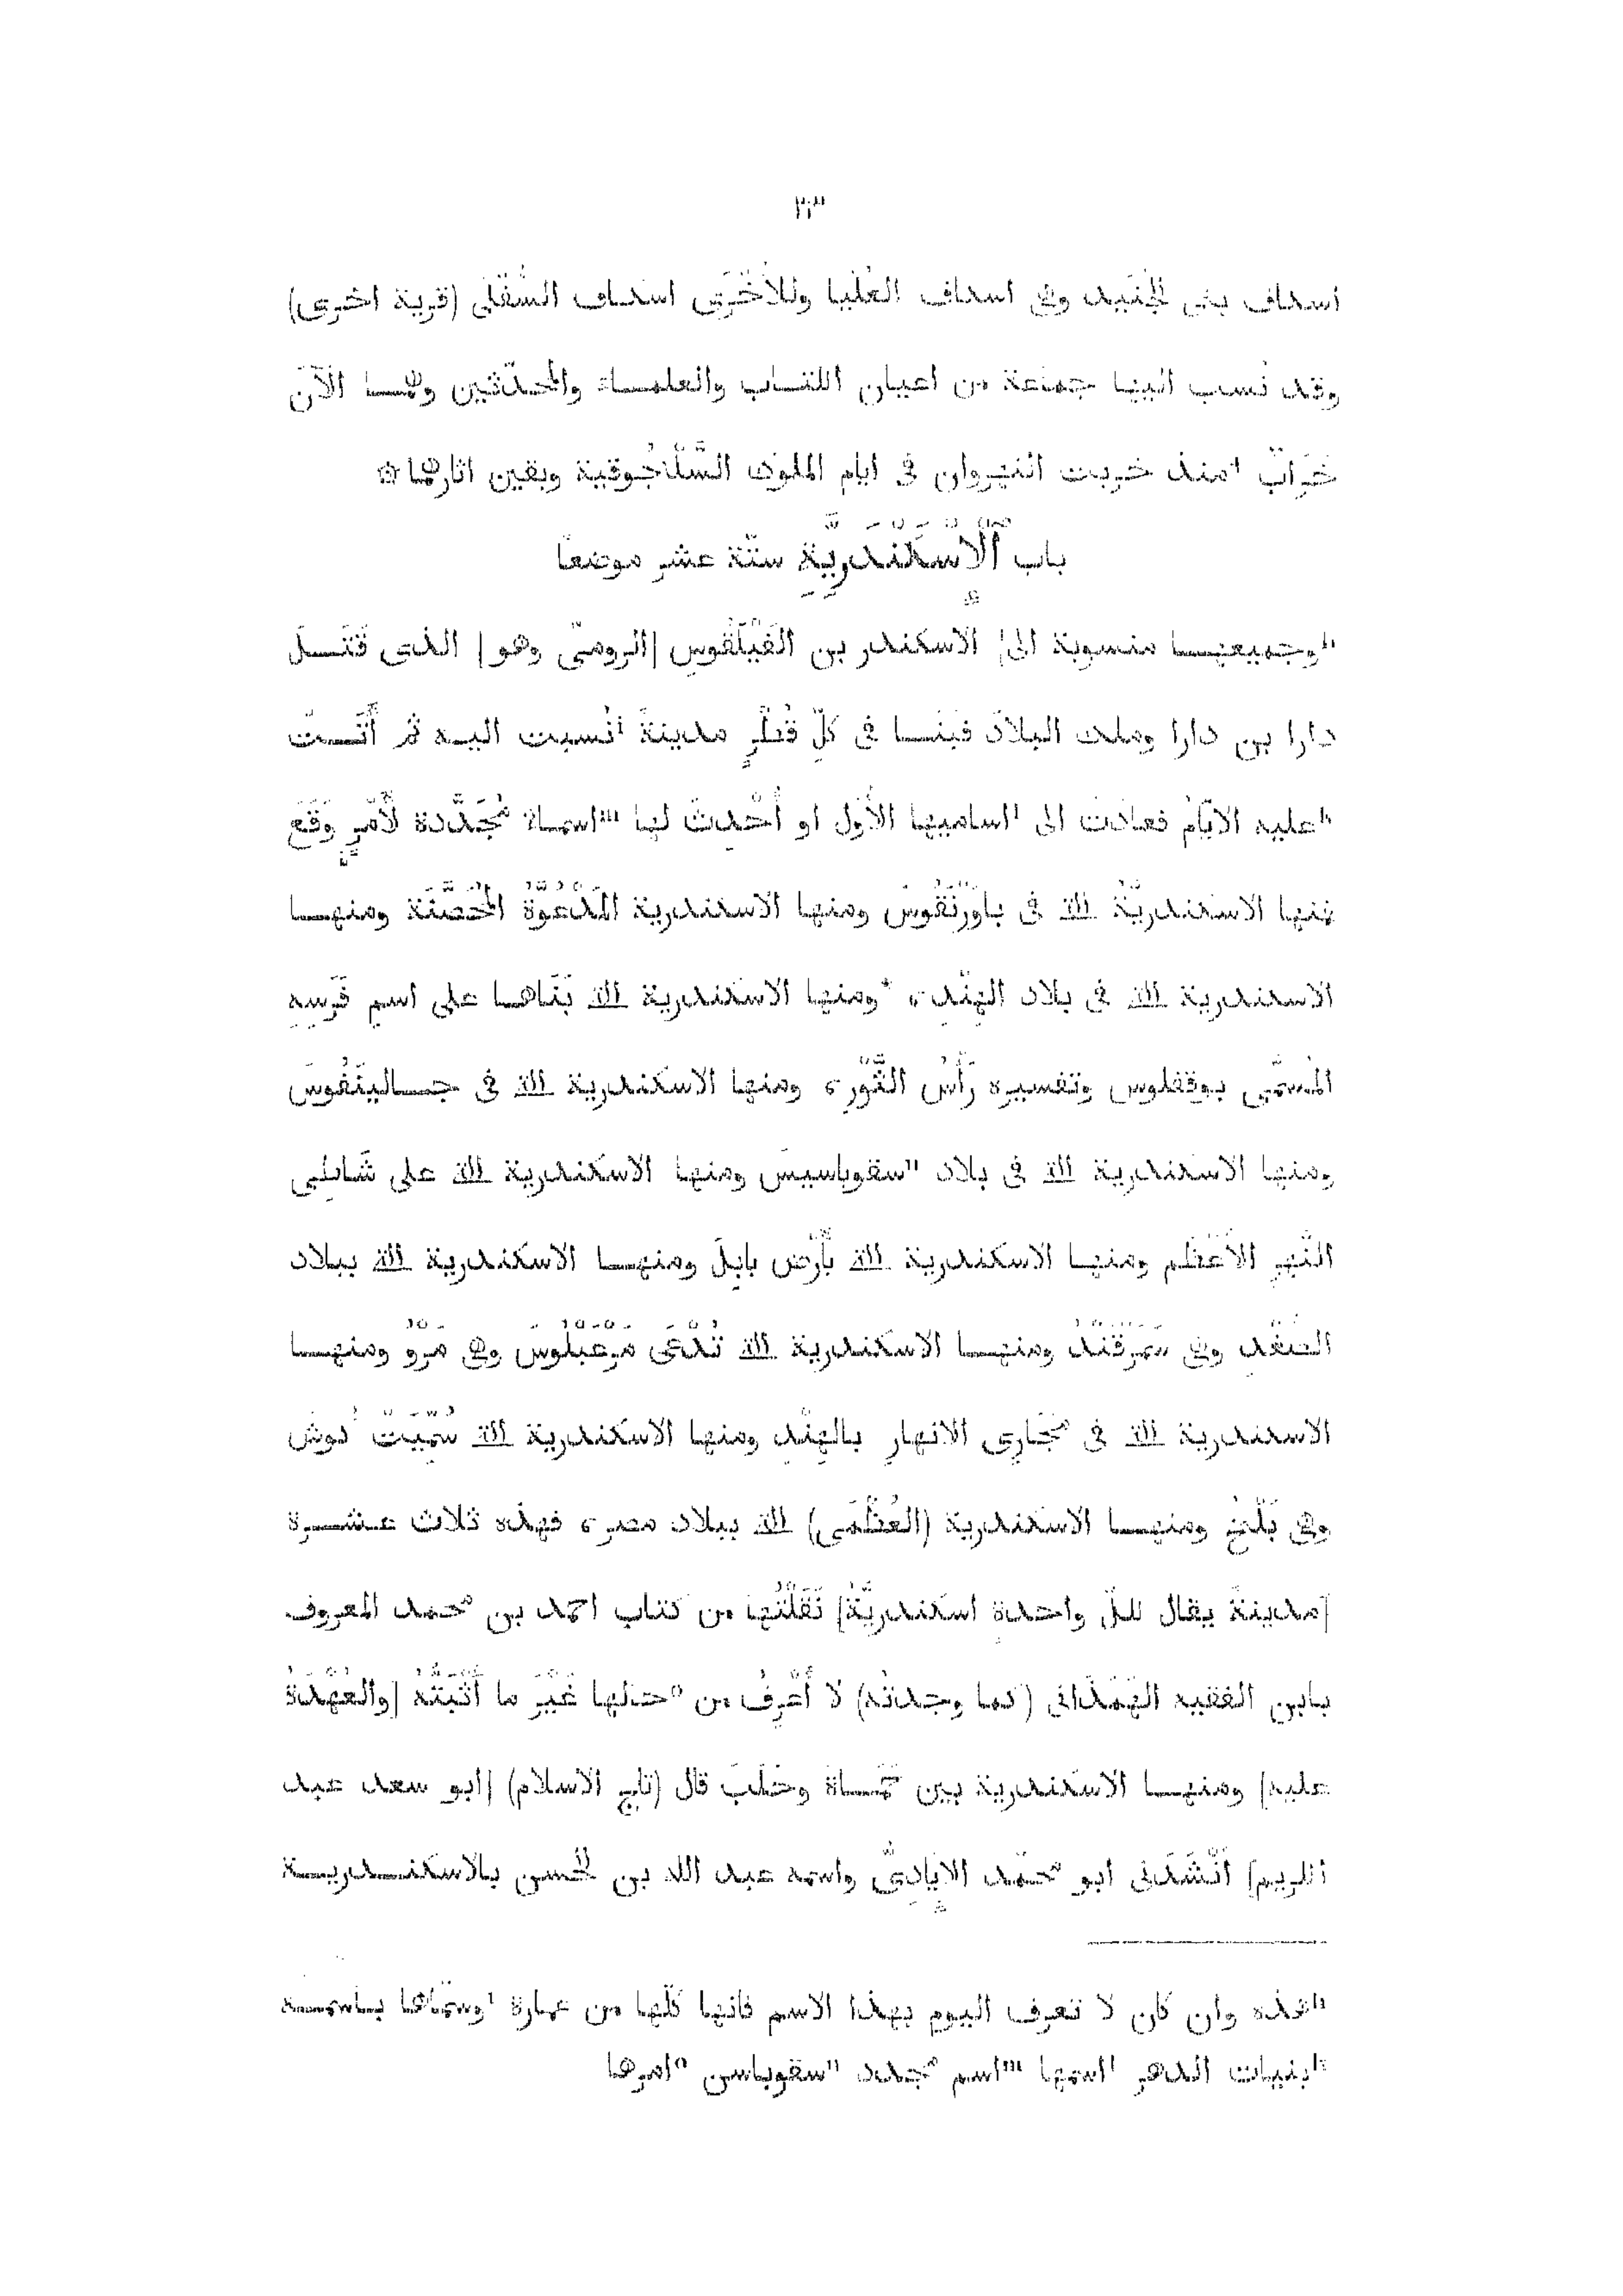 ٢٣
اسكاف بنى الجنيد وهى اسكاف العُلْيا وللأُخْرَى اسكاف السُّفْلى (قرية اخرى)
وقد نُسب اليها جماعة من اعيان الكتّاب والعلماء والمحدّثين وهما الآنَ
خَرَابٌ منذ خربت النهروان فى ايام الملوك السَّلْجُوقية وبقين اثارهما ۞
باب الْإِسْكَنْدَرِيَّةِ ستّة عشر موضعًا
وجميعها منسوبة الى الاسكندر بن الفَيْلَقُوس [الرومّى وهو] الذى قَتَلَ
دارا بن دارا وملك البلاد فبنا فى كلِّ قُطْرٍ مدينةً نُسبت اليه ثم أَتَتْ
عليه الايّامُ فعادت الى اساميها الأُول او أُحْدِثَ لها اسماء مُجَدَّدة لأَمْرٍ وَقَعَ
فمنها الاسكندريّة التى فى باوَرَنْقُوس ومنها الاسكندرية المَدْعُوَّةُ المُحَصَّنَة ومنها
الاسكندرية التى فى بلاد الهِنْدِ، ومنها الاسكندرية التى بَنَاها على اسم فَرَسِهِ
المُسَمَّى بوقفلوس وتفسيره رَأْسُ الثَّوْرِ، ومنها الاسكندرية التى فى جالينَقُوسَ
ومنها الاسكندرية التى فى بلاد سقوباسيسَ ومنها الاسكندرية التى على شَاطِئِى
النَّهرِ الأَعْظَم ومنها الاسكندرية التى بأَرْض بابِلَ ومنها الاسكندرية التى ببلاد
الصُّغْدِ وهى سَمَرْقَنْدُ ومنها الاسكندرية التى تُدْعَى مَرْعَبَلُوس وهى مَرْوُ ومنها
الاسكندرية التى فى مَجَارِى الانهارِ بالهِنْدِ ومنها الاسكندرية التى سُمِّيَتْ كُوش
وهى بَلْخُ ومنها الاسكندرية (العُظْمَى) التى ببلاد مصر، فهذه ثلاث عشرة
[مدينةً يقال لكلّ واحدةٍ اسكندريّةُ] نَقَلْتُها من كتاب احمد بن محمد المعروف
بابن الفقيه الهَمَذانى (كما وجدتُه) لا أَعْرِفُ من حالها غَيْرَ ما أَثْبَتَهُ [والعُهْدَةُ
عليه] ومنها الاسكندرية بين حَمَاةَ وحَلَبَ قال (تاج الاسلام) [ابو سعد عبد
الكريم] أَنْشَدَنى ابو محمّد الايَادِىُّ واسمه عبد الله بن الحسن بالاسكندرية
هذه وان كان لا تعرف اليوم بهذا الاسم فانها كلّها من عمارة وسمّاها باسمه
بنيات الدهر اسمها اسم مجدد سقوباسن امرها